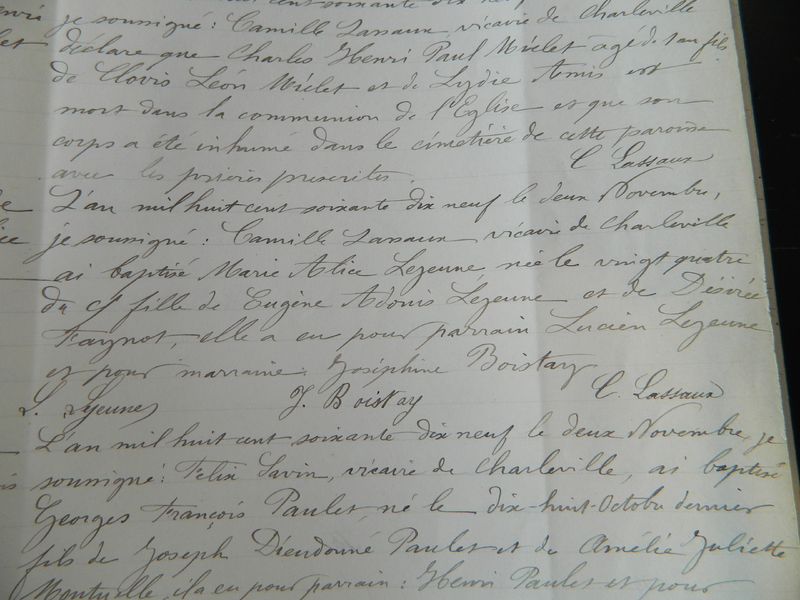 cent soixante dix neuf
je soussigné : Camille Lassaux vicaire de Charleville
déclare que Charles Henri Paul Miclet agé de 1 an fils
de Clovis Léon Miclet et de Lydie Amis est
mort dans la communion de l'Eglise et que son
corps a été inhumé dans le cimetière de cette paroisse
avec les prières prescrites. C Lassaux
L'an mil huit cent soixante dix neuf le deux Novembre,
je soussigné : Camille Lassaux vicaire de Charleville
ai baptisé Marie Alice Lezeune née le vingt quatre
du ct fille de Eugène Adonis Lezeune et de Désirée
Faynot, elle a eu pour parrain Lucien Lezeune
et pour marraine : Joséphine Boistay
L. Lejeune J. Boistay C. Lassaux
L'an mil huit cent soixante dix neuf le deux Novembre, je
soussigné : Felix Savin, vicaire de Charleville, ai baptisé
Georges François Paulet, né le dix-huit Octobre dernier
fils de Joseph Dieudonné Paulet et de Amélie Juliette
il a eu pour parrain : Henri Paulet et pour